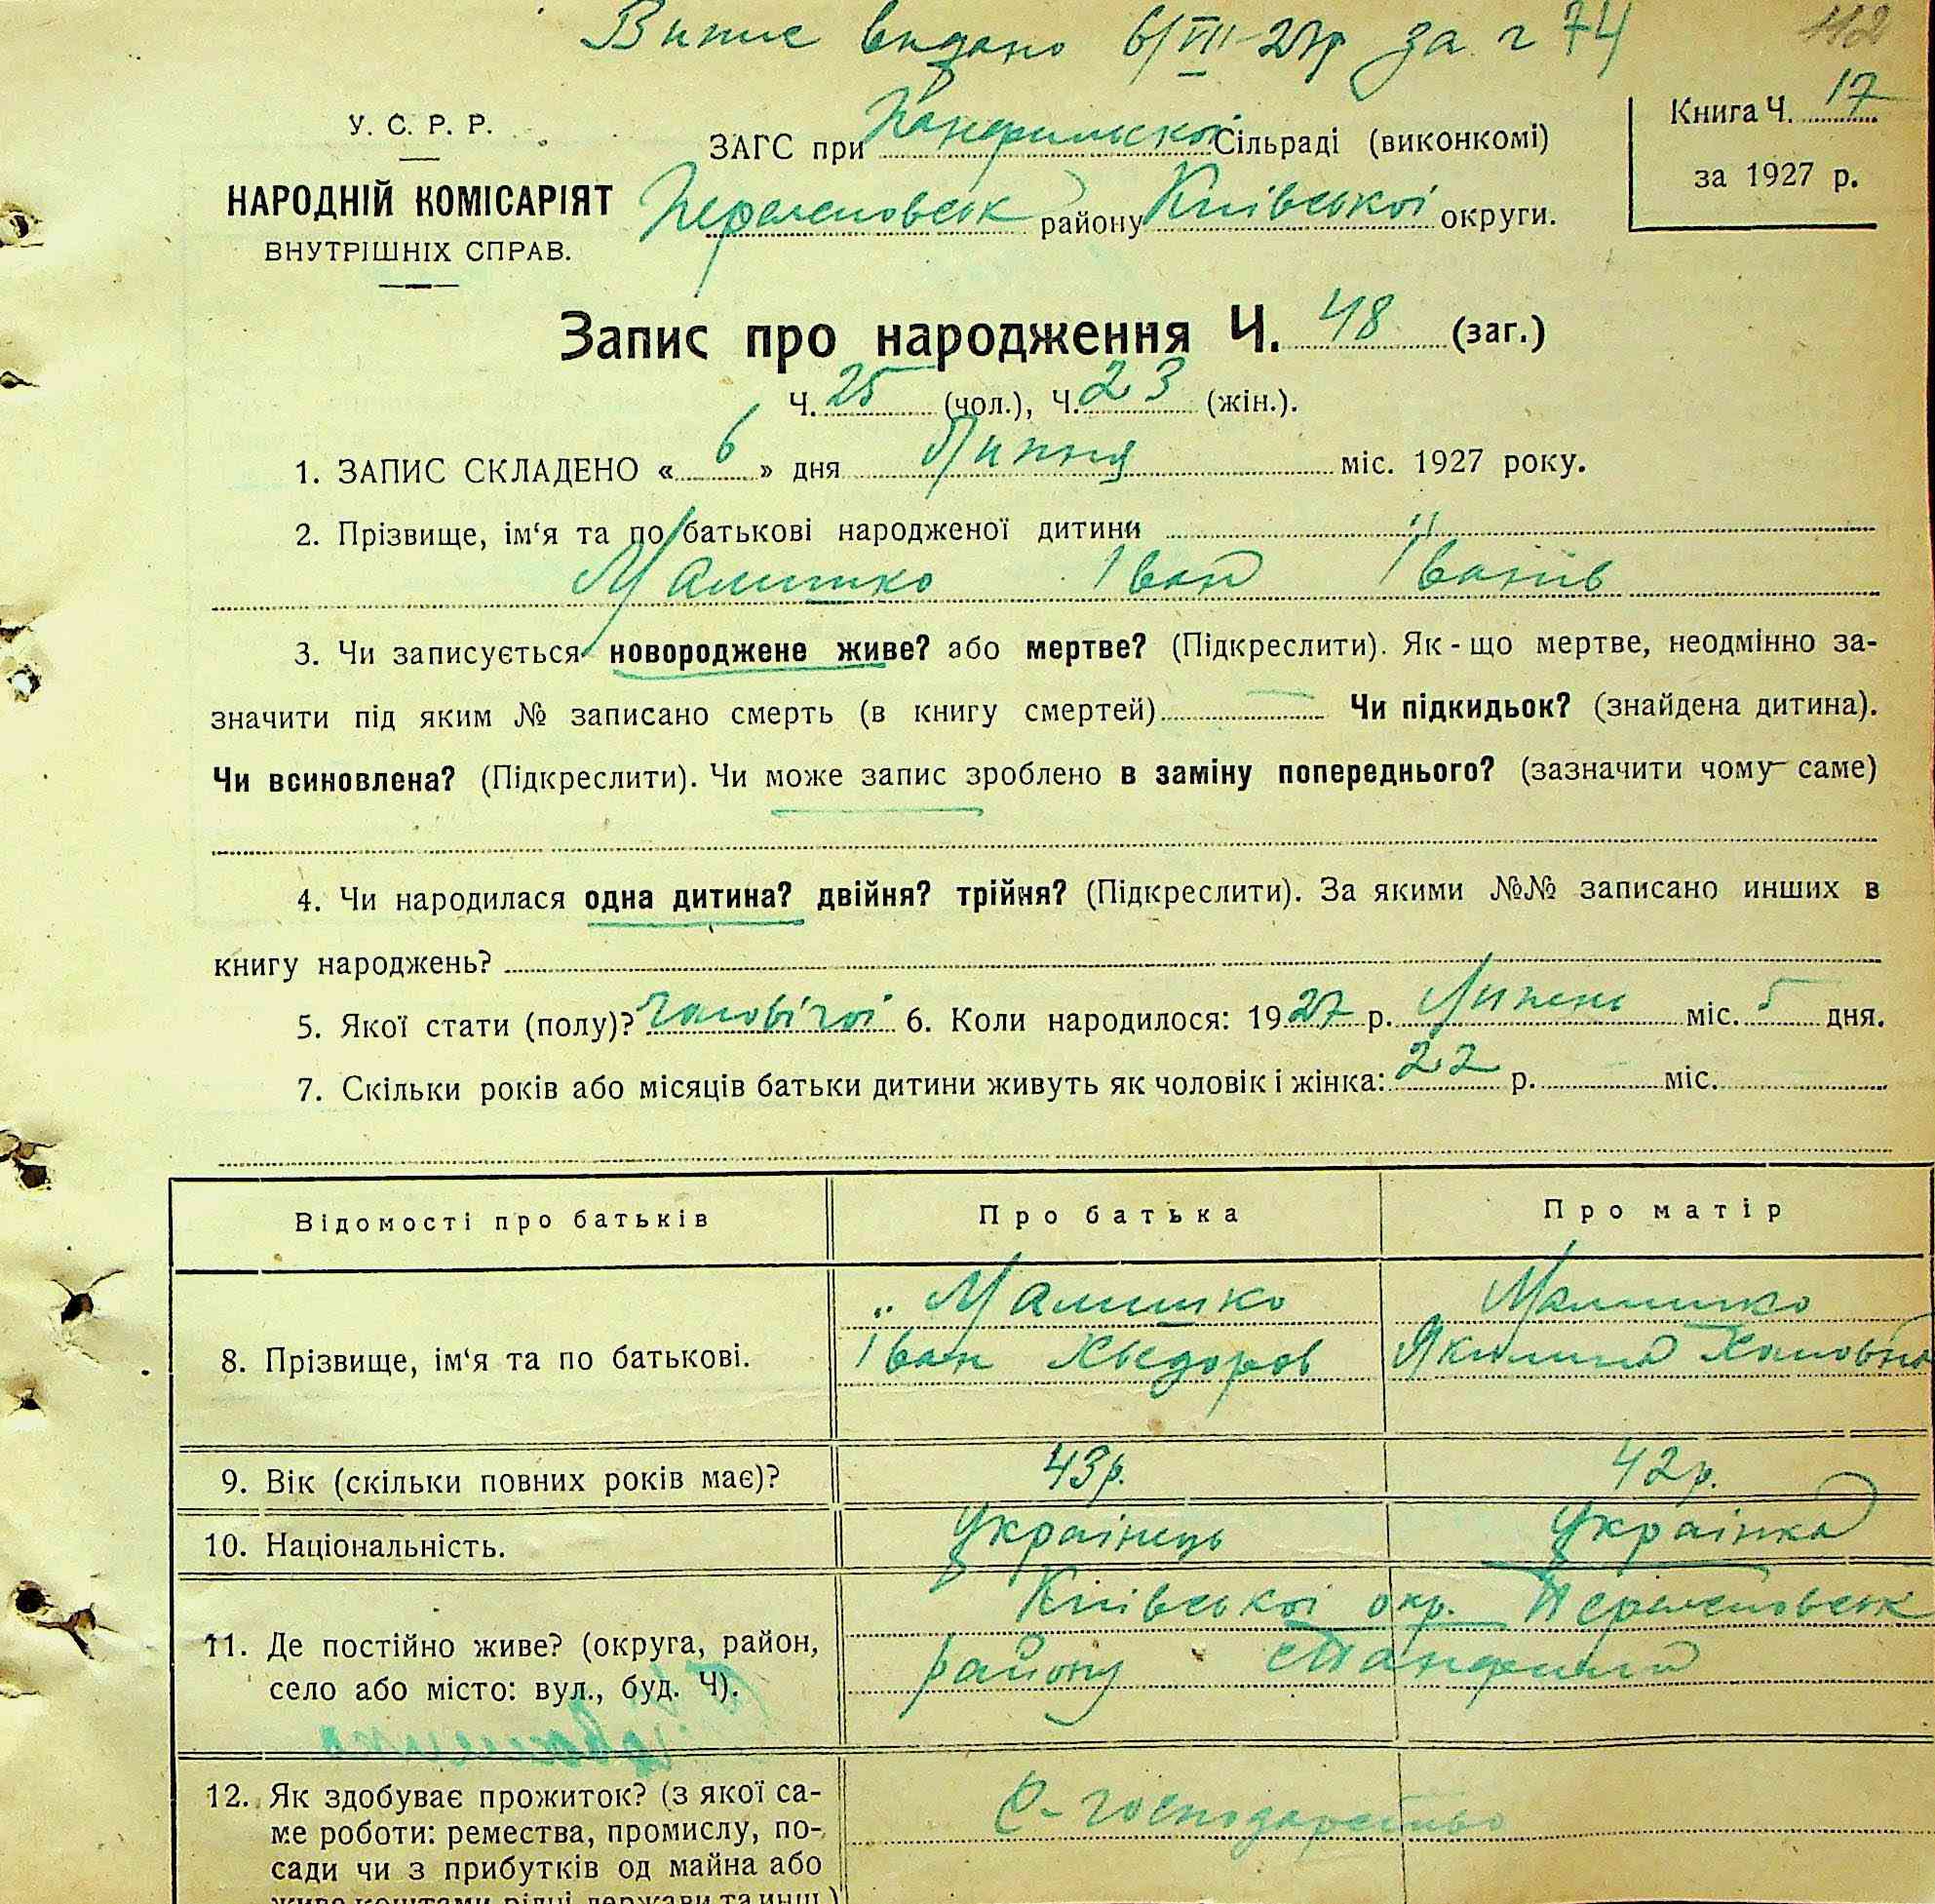 Випис видано 6/VII-27р за ч 74
112
У. С. Р. Р.
НАРОДНІЙ КОМІСАРІЯТ
ВНУТРІШНІХ СПРАВ.
ЗАГС при Панфильскої Сільраді (виконкомі)
району Київської округи.
Книга Ч. 17
за 1927 р.
Запис про народження Ч. 48 (заг.)
Ч. 25 (чол.), Ч. 23 (жін.).
1. ЗАПИС СКЛАДЕНО «6» дня Липня міс. 1927 року.
2. Прізвище, ім‘я та по батькові народженої дитини
Малишко Іван Іванів
3. Чи записується новороджене живе? або мертве? (Підкреслити). Як-що мертве, неодмінно за-
значити під яким № записано смерть (в книгу смертей) Чи підкидьок? (знайдена дитина).
Чи всиновлена? (Підкреслити). Чи може запис зроблено в заміну попереднього? (зазначити чому саме)
4. Чи народилася одна дитина? двійня? трійня? (Підкреслити). За якими №№ записано инших в
книгу народжень?
5. Якої стати (полу)? 6. Коли народилося: 1927 р. Липень міс. 5 дня.
7. Скільки років або місяців батьки дитини живуть як чоловік і жінка: 22 р. міс.
Відомості про батьків Про батька Про матір
8. Прізвище, ім‘я та по батькові.
Малишко
Іван Хведоров
Малишко
Якилина
9. Вік (скільки повних років має)? 43р. 42р.
10. Національність. Українець Українка
11. Де постійно живе? (округа, район,
село або місто: вул., буд. Ч).
Київської окр.
району с Панфили
12. Як здобуває прожиток? (з якої са-
ме роботи: ремества, промислу, по-
сади чи з прибутків од майна або
живе коштами рідні, держави та инш.)
С-господарство